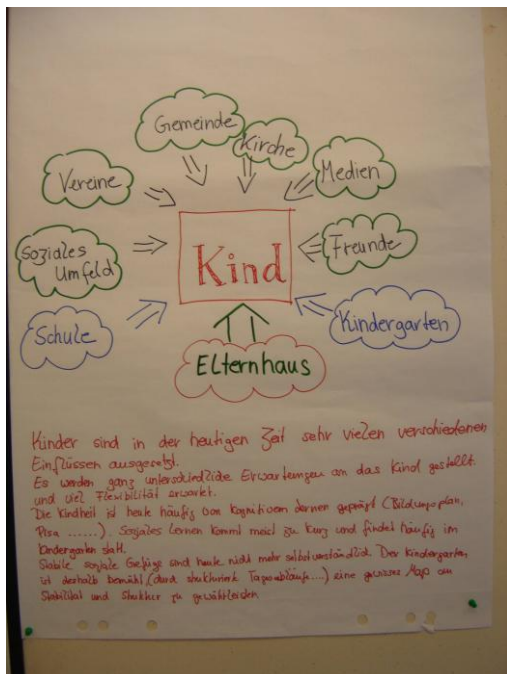 Gemeinde
Kirche
Vereine
Medien
Soziales
Umfeld
Kind
Freunde
Schule
Kindergarten
Elternhaus
Kinder sind in der heutigen Zeit sehr vielen verschiedenen
Einflüssen ausgesetzt.
Es werden ganz unterschiedliche Erwartungen an das Kind gestellt
und viel Flexibilität erwartet.
Die Kindheit ist heute häufig von kognitivem Lernen geprägt (Bildungsplan,
Pisa ......). Soziales Lernen kommt meist zu kurz und findet häufig im
Kindergarten statt.
Stabile, soziale Gefüge sind heute nicht mehr selbstverständlich. Der Kindergarten
ist deshalb bemüht (durch strukturierte Tagesabläufe....) eine gewisses Maß an
Stabilität und Struktur zu gewährleisten